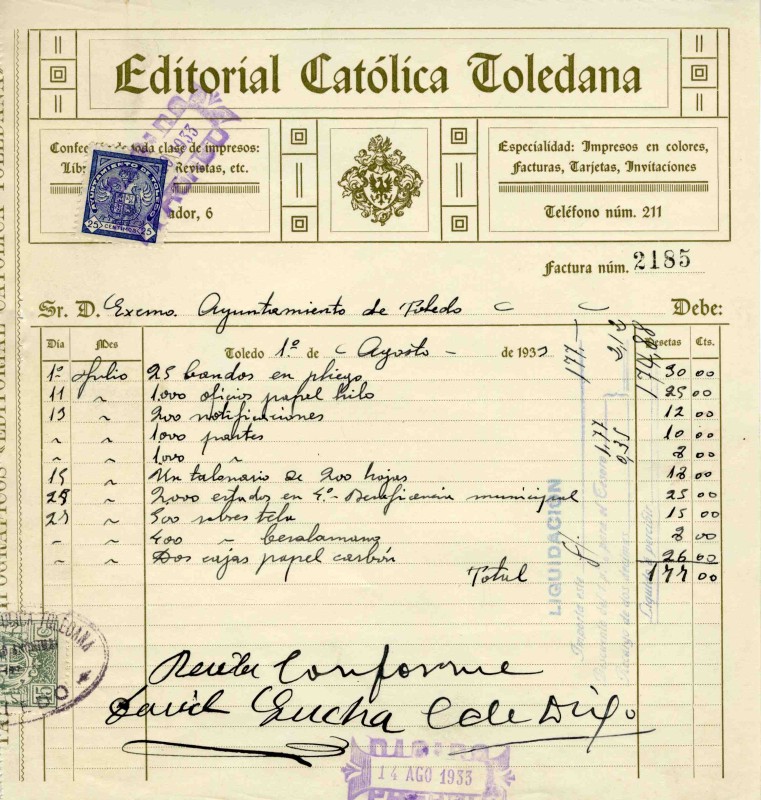 Editorial Católica Toledana
Confec de toda clase de impresos:
Lib Revistas, etc.
ador, 6
Especialidad: Impresos en colores,
Facturas, Tarjetas, Invitaciones
Teléfono núm. 211
AYUNTAMIENTO DE TOLEDO
25 CENTIMOS 25
1933
Factura núm. 2185
Sr. D. Excmo. Ayuntamiento de Toledo Debe:
Día Mes Toledo 1º de Agosto de 1933 Pesetas Cts.
1º Julio 25 bandos en pliego 30 00
11 " 1.000 oficios papel hilo 25 00
13 " 200 notificaciones 12 00
" " 1000 partes 10 00
" " 1.000 " 8 00
15 " Un talonario de 200 hojas 18 00
25 " 2.000 estados en 4º Beneficencia municipal 25 00
27 " 500 sobres tela 15 00
" " 400 " besalamano 8 00
" " Dos cajas papel carbón 26 00
Total 177 00
LIQUIDACION
Importa este
177
Líquido a percibir
Conforme
14 AGO 1933
TOLEDANA
EDITORIAL CATOLICA TOLEDANA